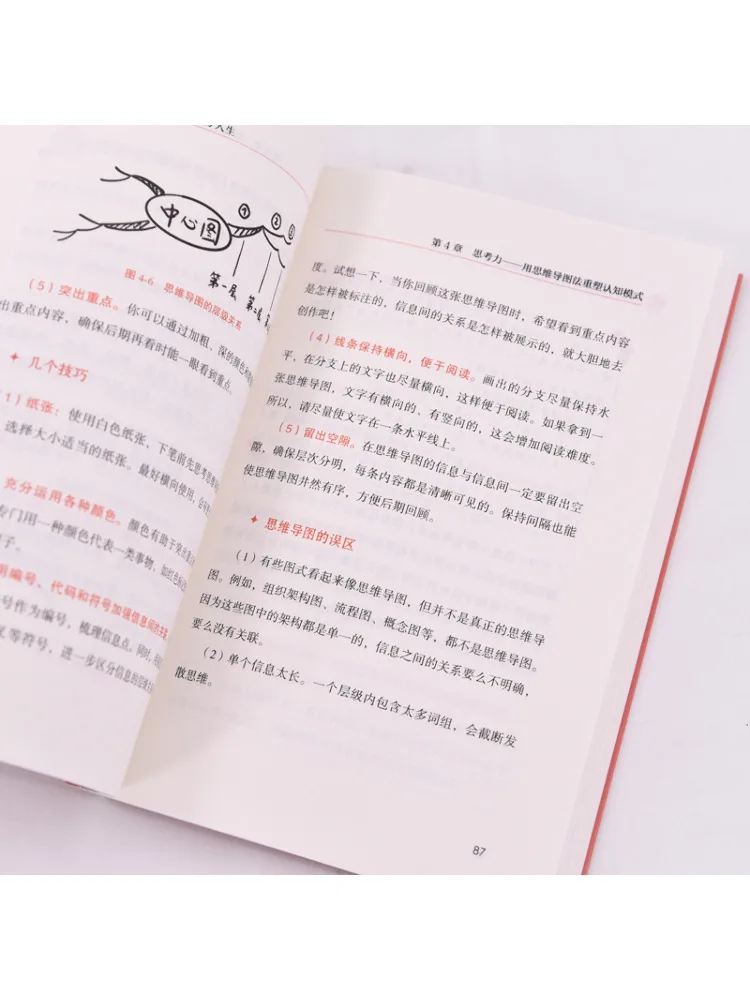 人生
中心图
① ②
第一层
图 4-6 思维导图的层级关系
（5）突出重点。你可以通过加粗、深的颜色
出重点内容，确保后期再看时能一眼看到重点。
✦ 几个技巧
1）纸张：使用白色纸张，下笔前先思考
选择大小适当的纸张。最好横向使用，
充分运用各种颜色。颜色有助于
专门用一种颜色代表一类事物，如红色
子。
用编号、代码和符号加强信息间的关联
号作为编号，梳理信息点。同时，
等符号，进一步区分信息的层级
第 4 章 思考力——用思维导图法重塑认知模式
度。试想一下，当你回顾这张思维导图时，希望看到重点内容
是怎样被标注的，信息间的关系是怎样被展示的，就大胆地去
创作吧！
（4）线条保持横向，便于阅读。画出的分支尽量保持水
平，在分支上的文字也尽量横向，这样便于阅读。如果拿到一
张思维导图，文字有横向的、有竖向的，这会增加阅读难度。
所以，请尽量使文字在一条水平线上。
（5）留出空隙。在思维导图的信息与信息间一定要留出空
隙，确保层次分明，每条内容都是清晰可见的。保持间隔也能
使思维导图井然有序，方便后期回顾。
✦ 思维导图的误区
（1）有些图式看起来像思维导图，但并不是真正的思维导
图。例如，组织架构图、流程图、概念图等，都不是思维导图。
因为这些图中的架构都是单一的，信息之间的关系要么不明确，
要么没有关联。
（2）单个信息太长。一个层级内包含太多词组，会截断发
散思维。
87